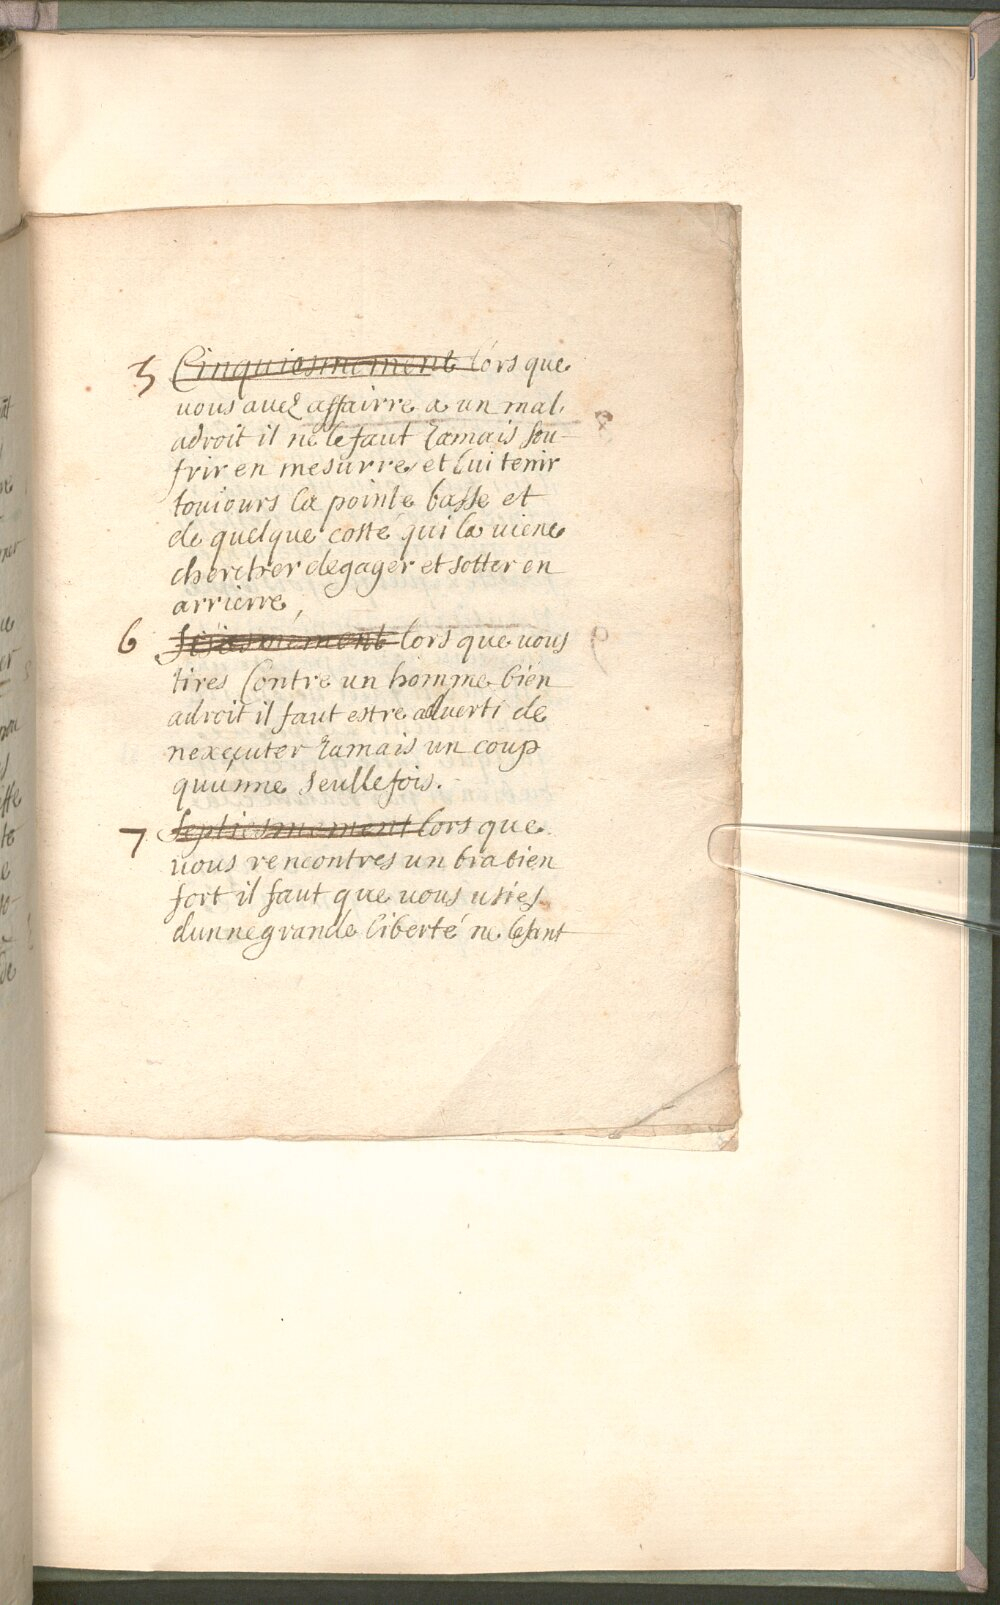 5 Cinquiesmement lors que
vous auez affairre a un mal
adroit il ne le faut Jamais sou-
frir en mesurre et lui tenir
touiours la pointe basse et
de quelque costé qui la viene
chercher degager et sotter en
arrierre,
6 Sixiesmement lors que vous
tires Contre un homme bien
adroit il faut estre aduerti de
nexecuter Jamais un coup
qu'unne seulle fois.
7 Septiesmement lors que
vous rencontres un bra bien
fort il faut que vous usies
dunne grande liberté ne lesant